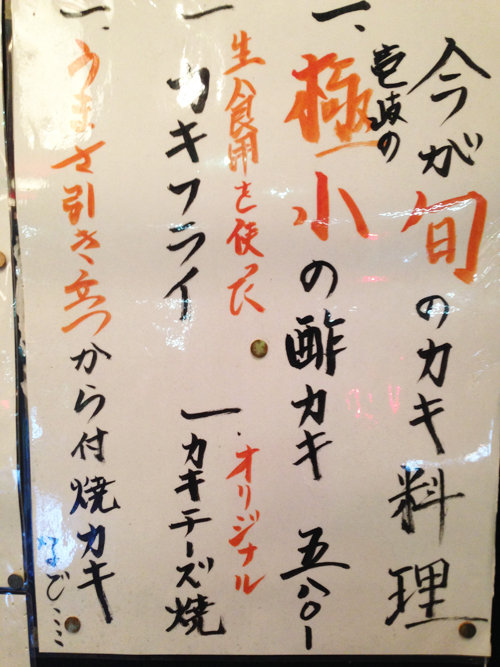 今が旬のカキ料理
一、壱岐の極小の酢カキ 五八〇ー
一 生食用を使った
カキフライ
一、オリジナル
カキチーズ焼
一、うまさ引き立つから付焼カキ
など…